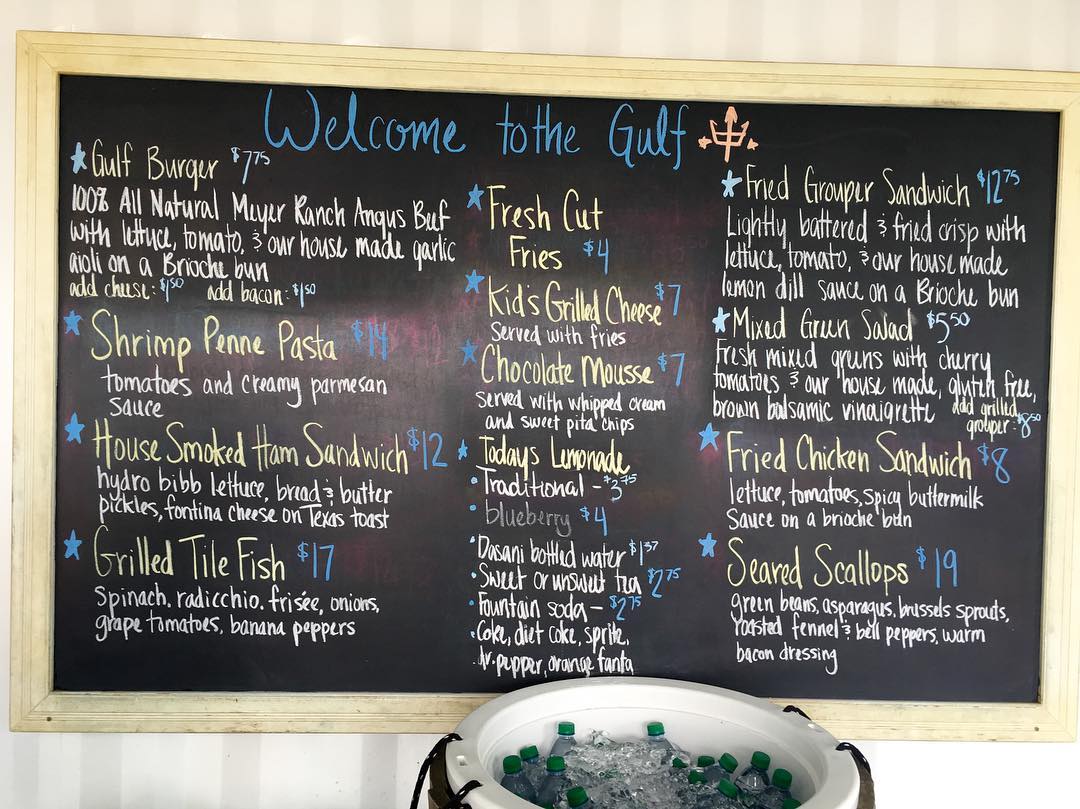 Welcome to the Gulf
Gulf Burger $7.75
100% All Natural Meyer Ranch Angus Beef
with lettuce, tomato, & our house made garlic
aioli on a Brioche bun
add cheese: $1.50 add bacon: $1.50
Shrimp Penne Pasta $14
tomatoes and creamy parmesan
sauce
House Smoked Ham Sandwich $12
hydro bibb lettuce, bread & butter
pickles, fontina cheese on Texas toast
Grilled Tile Fish $17
spinach. radicchio. frisée, onions,
grape tomatoes, banana peppers
Fresh Cut
Fries $4
Kid's Grilled Cheese $7
served with fries
Chocolate Mousse $7
served with whipped cream
and sweet pita chips
Todays Lemonade
Traditional - $3.75
blueberry $4
Dasani bottled water $1.37
Sweet or unsweet tea $2.75
Fountain soda - $2.75
Coke, diet coke, sprite,
dr. pepper, orange fanta
Fried Grouper Sandwich $12.75
Lightly battered & fried crisp with
lettuce, tomato, & our house made
lemon dill sauce on a Brioche bun
Mixed Green Salad $5.50
Fresh mixed greens with cherry
tomatoes & our house made, gluten free,
brown balsamic vinaigrette add grilled
grouper: $8.50
Fried Chicken Sandwich $8
lettuce, tomatoes, spicy buttermilk
sauce on a brioche bun
Seared Scallops $19
green beans, asparagus, brussels sprouts,
roasted fennel & bell peppers, warm
bacon dressing